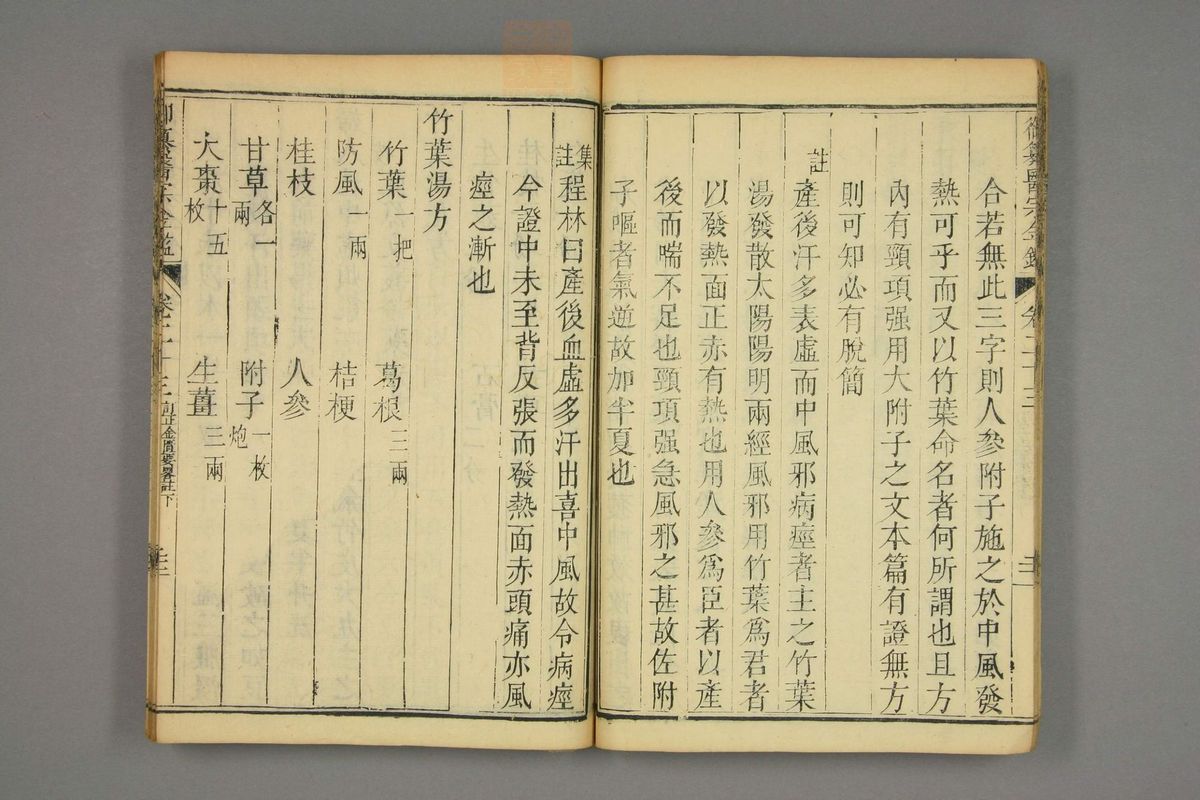 合若無此三字則人參附子施之於中風發
熱可乎而又以竹葉命名者何所謂也且方
內有頸項强用大附子之文本篇有證無方
則可知必有脫簡
註
產後汗多表虛而中風邪病痙者主之竹葉
湯發散太陽陽明兩經風邪用竹葉爲君者
以發熱面正赤有熱也用人參爲臣者以產
後而喘不足也頸項强急風邪之甚故佐附
子嘔者氣逆故加半夏也
集註
程林曰產後血虛多汗出喜中風故令病痙
今證中未至背反張而發熱面赤頭痛亦風
痙之漸也
竹葉湯方
竹葉一把 葛根三兩
防風一兩 桔梗
桂枝 人參
甘草各一兩 附子一枚炮
大棗十五枚 生薑三兩
卷二十三 訂正金匱要畧註下